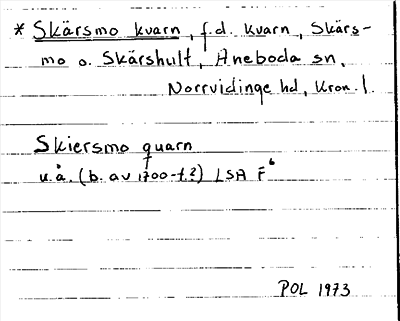 * Skärsmo kvarn, f.d. kvarn, Skärs-
mo o. Skärshult, Aneboda sn,
Norrvidinge hd, Kron. l.
Skiersmo quarn
u.å. (b. av 1700-t.?) LSA F⁶
POL 1973